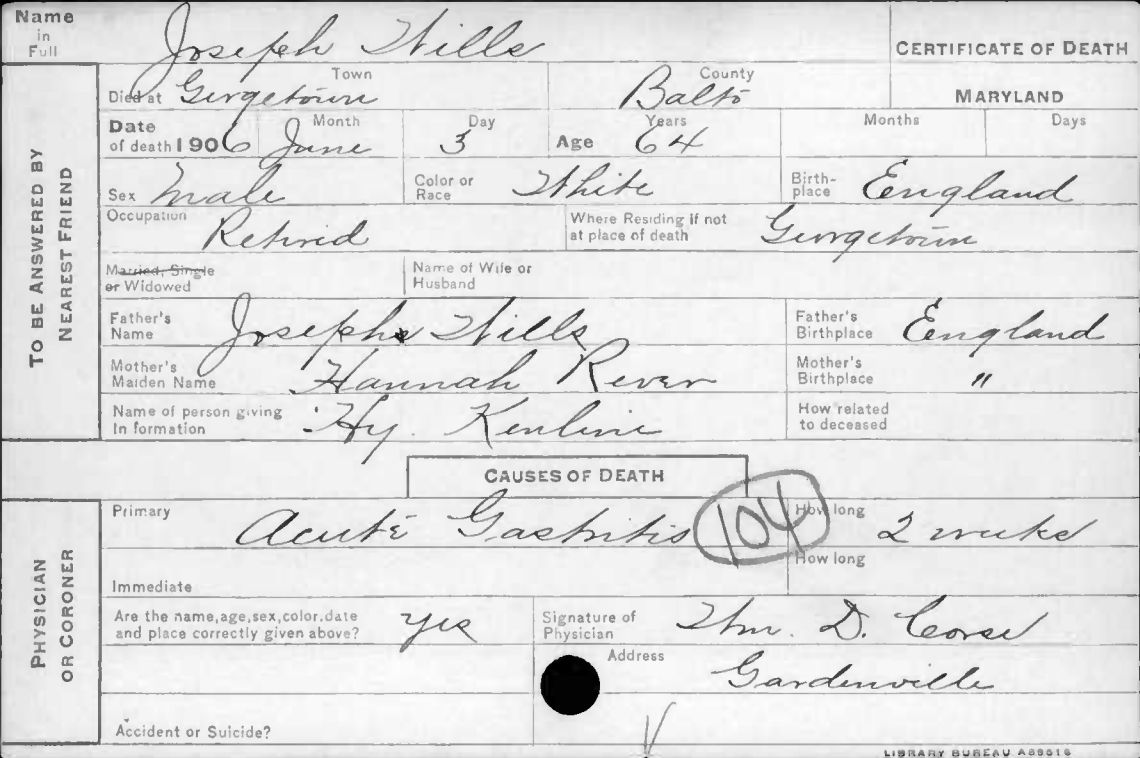 Name in Full Joseph Wills CERTIFICATE OF DEATH
Town County
Died at Georgetown Balto MARYLAND
Date of death 1906 Month June Day 3 Age Years 64 Months Days
Sex Male Color or Race White Birth-place England
Occupation Retired Where Residing if not at place of death Georgetown
Married, Single or Widowed Name of Wife or Husband
Father's Name Joseph Wills Father's Birthplace England
Mother's Maiden Name Hannah River Mother's Birthplace "
Name of person giving In formation Hy. Kenline How related to deceased
TO BE ANSWERED BY NEAREST FRIEND
CAUSES OF DEATH
Primary Acute Gastritis 104 How long 2 weeks
Immediate How long
Are the name, age, sex, color, date and place correctly given above? yes Signature of Physician Wm. D. Corse
Address Gardenville
Accident or Suicide?
PHYSICIAN OR CORONER
LIBRARY BUREAU A88516